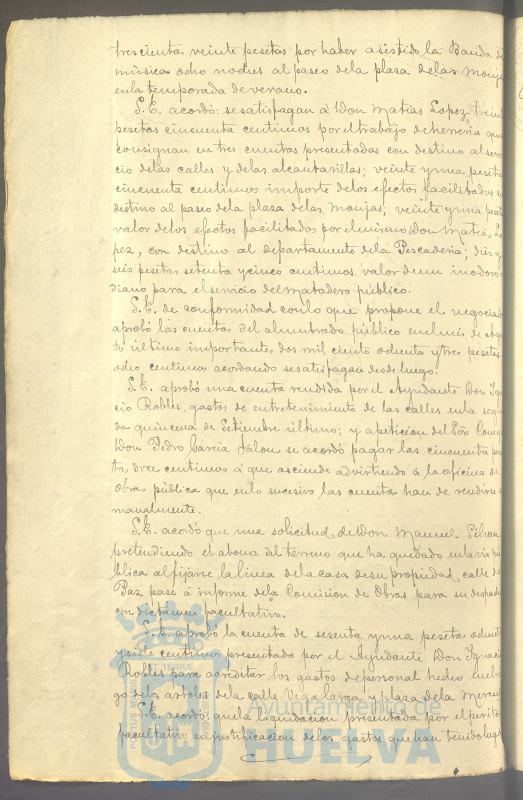 trescientas veinte pesetas por haber asistido la Banda de
música ocho noches al paseo dela plaza delas Monjas
enla temporada de verano.
S.E. acordó: sesatisfagan á Don Matias Lopez
pesetas cincuenta centimos por eltrabajo deherreria que
consignan en tres cuentas presentadas con destino alservi
cio delas calles y delas alcantarillas; veinte yuna peseta
cincuenta centimos importe delos efectos facilitados
destino al paseo dela plaza delas Monjas; veinte yuna
valor delos efectos facilitados por elmismo Don Matias, Lo
pez, con destino al departamento dela Pescaderia; diez y
seis pesetas setenta ycinco centimos valor deun inodoro
diano para elservicio delMatadero público.
S.E. de conformidad conlo que propone el negociado
aprobó las cuentas del alumbrado público enelmes de Agos
to último importantes dos mil ciento ochenta ytres pesetas
ocho centimos acordando sesatisfagan desde luego.
S.E. aprobó una cuenta rendida por el Ayudante Don Igna
cio Robles, gastos de entretenimiento de las calles enla segun
da quincena de Setiembre último; y apeticion del Sor. Concejal
Don Pedro Garcia Jalon se acordó pagar las cincuenta
doce centimos á que asciende advirtiendo á la oficina de
Obras pública que enlo sucesivo las cuenta han de rendirse
manalmente.
S.E. acordó que una solicitud, de Don Manuel
pretendiendo el abono del terreno que ha quedado enla via pú
blica alfijarse la linea dela casa desu propiedad, calle de
Paz pase á informe dela Comision de Obras para su despacho
con dictámen facultativo.
S.E. aprobó la cuenta de sesenta yuna pesetas ochenta
ysiete centimos presentada por el Ayudante Don Ignacio
Robles para acreditar los gastos depersonal hecho enel rie
go delos árboles dela calle Vega larga y plaza dela Merced.
S.E. acordó, quela liquidacion presentada por el perito
facultativo enjustificacion delos gastos quehan tenido lugar
PORTUS MARIS
Ayuntamiento de
HUELVA